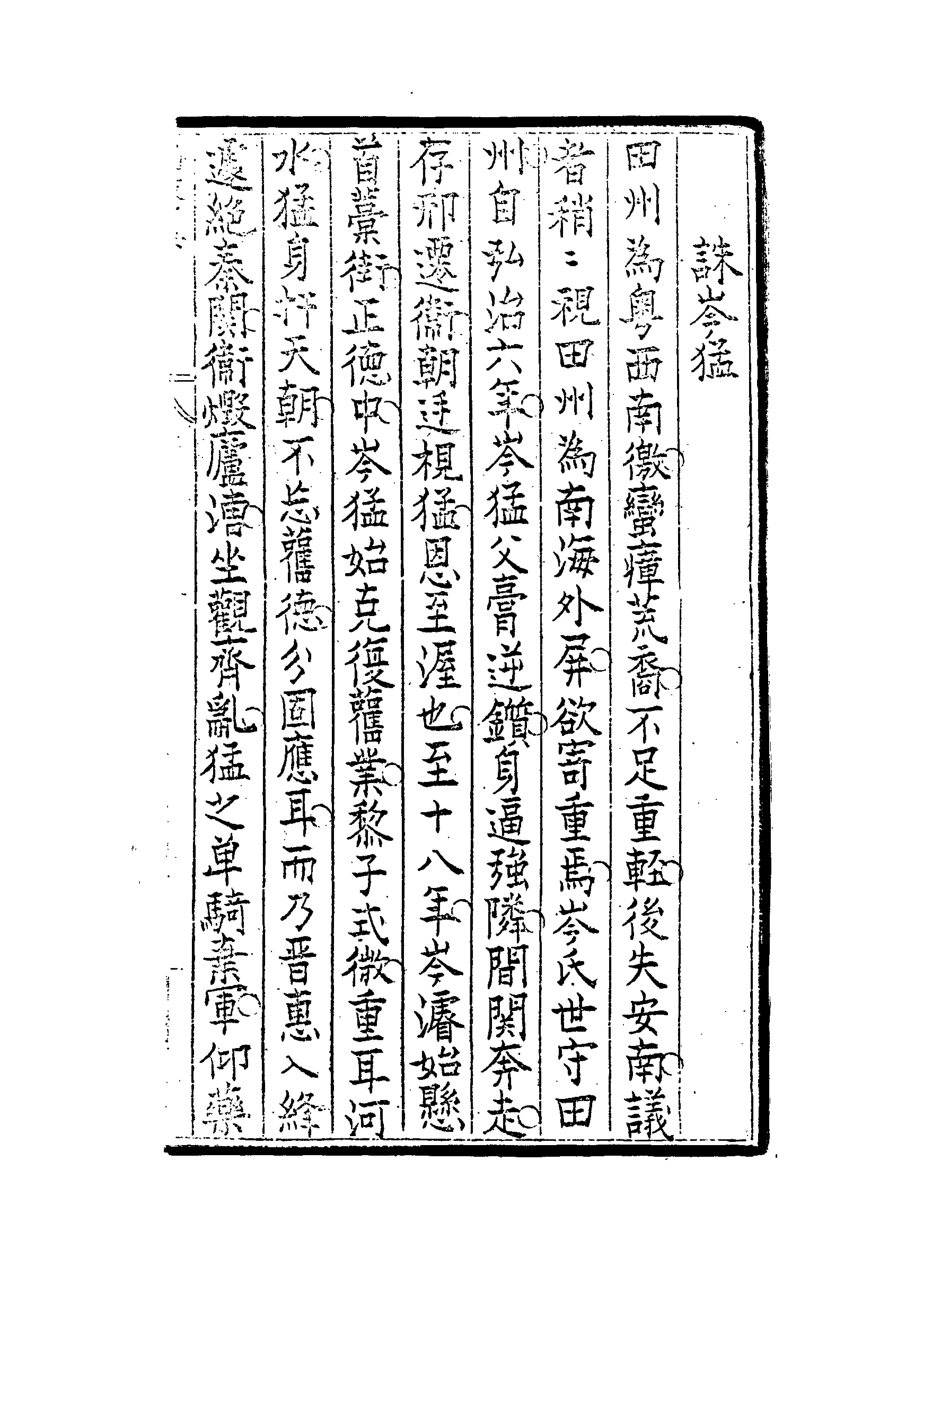 誅岑猛
田州為粵西南徼蠻瘴荒裔不足重輕後失安南議
者稍〻視田州為南海外屏欲寄重焉岑氏世守田
州自弘治六年岑猛父膏逆鑕身逼強隣間關奔走
存邢遷衞朝廷視猛恩至渥也至十八年岑濬始懸
首藁街正德中岑猛始克復舊業黎子式微重耳河
水猛身扞天朝不忘舊德分固應耳而乃晋惠入絳
遽絕秦關衞燬廬漕坐觀齊亂猛之单騎棄軍仰藥